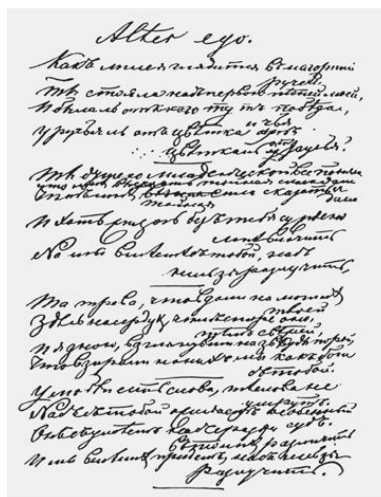 Alter ego.
Какъ лилея глядится въ нагорный
ручей,
Ты стояла надъ первою пѣсней моей,
И была ль при этомъ побѣда, и чья,
У ручья ль отъ цвѣтка
цвѣтка ль отъ ручья?
Ты душою младенческой все поняла
что мнѣ высказать тайная сила дала
И хоть жизнь безъ тебя суждено
мнѣ влачить
Но мы вмѣстѣ съ тобой, насъ
нельзя разлучить.
Та трава, что вдали на могилѣ
твоей
Здѣсь на сердцѣ, чѣмъ старѣ оно,
тѣмъ свѣжей,
И я знаю, взглянувши на звѣзды порой
Что взирали на нихъ мы какъ боги
съ тобой.
У любви есть слова, тѣ слова не
умрутъ.
Насъ съ тобой ожидаетъ особенный
судъ.
Онъ съумѣетъ насъ сразу въ
толпѣ различить
И мы вмѣстѣ придемъ, насъ нельзя
разлучить.